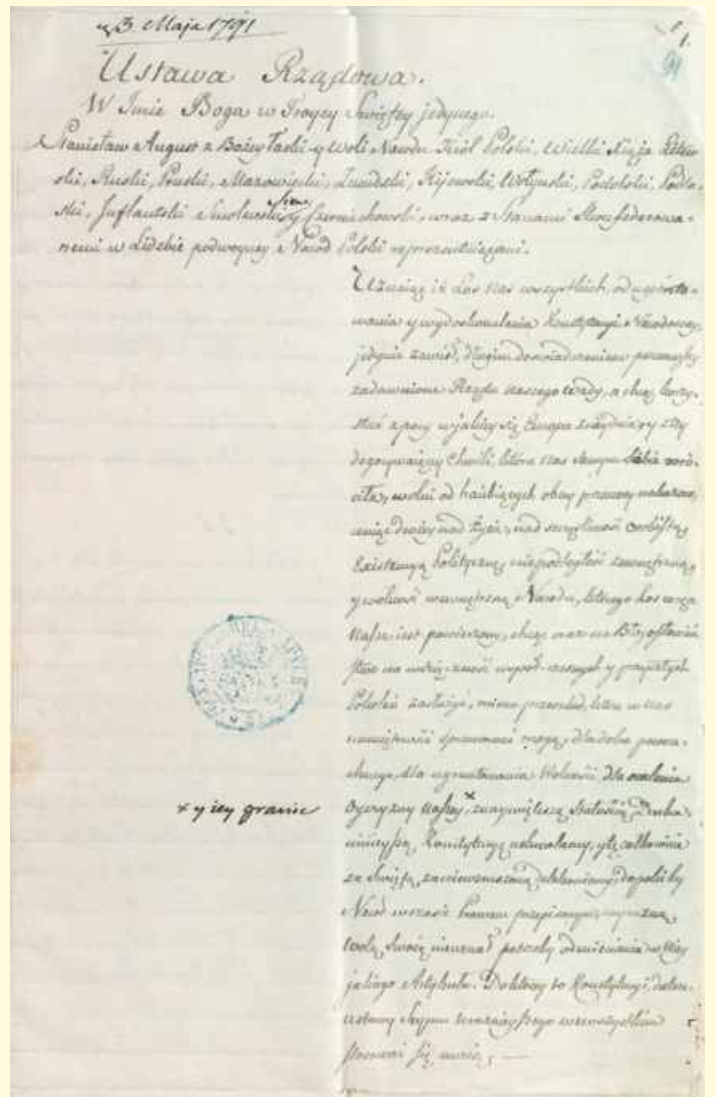 3 Maja 1791
1.
91
Ustawa Rządowa.
W Imie Boga w Troycy Swiętey jedynego.
Stanisław August z Bożey Łaski y Woli Narodu Król Polski, Wielki Xiąże Litew-
ski, Ruski, Pruski, Mazowiecki, Żmudzki, Kijowski, Wołynski, Podolski, Podla-
ski, Inflantski Smolenski, Siew: y Czerniechowski, wraz z Stanami Skonfederowa-
nemi w Liczbie podwoyney Naród Polski reprezentuiącemi.
Uznaiąc iż Los nas wszystkich, od ugrunto-
wania y wydoskonalenia Konstytucyi Narodowey,
jedynie zawisł, długim doswiadczeniem poznawszy
zadawnione Rządu naszego wady, a chcąc korzy-
stać z pory w jakiey się Europa znayduie y z tey
dogorywaiącey Chwili, ktora nas samym Sobie wró-
ciła, wolni od hańbiących obcey przemocy nakazow,
ceniąc drożey nad życie, nad szczęsliwość osobistą,
Existencyą Polityczną, niepodległość zewnętrzną,
y wolność wewnętrzną Narodu, ktorego Los w ręce
nasze iest powierzony, chcąc oraz na Błogosławień-
stwo na wdzięczność współczesnych y przyszłych
Pokoleń zasłużyć, mimo przeszkod, ktore w nas
namiętności sprawować mogą, dla dobra powsze-
chnego, dla ugruntowania Wolności, dla ocalenia
x y iey granic
Oyczyzny naszey, x z naywiększą Stałością Ducha,
ninieyszą Konstytucyę uchwalamy, y tę całkowicie
za Swiętą, za niewzruszoną deklaruiemy, dopokiby
Naród w czasie Prawem przepisanym, wyrazną
wolą Swoią nieuznał potrzeby odmienienia w niey
jakiego Artykułu. Do ktorey to Konstytucyi, dalsze
ustawy Seymu teraznieyszego we wszystkim
stosować się maią, —